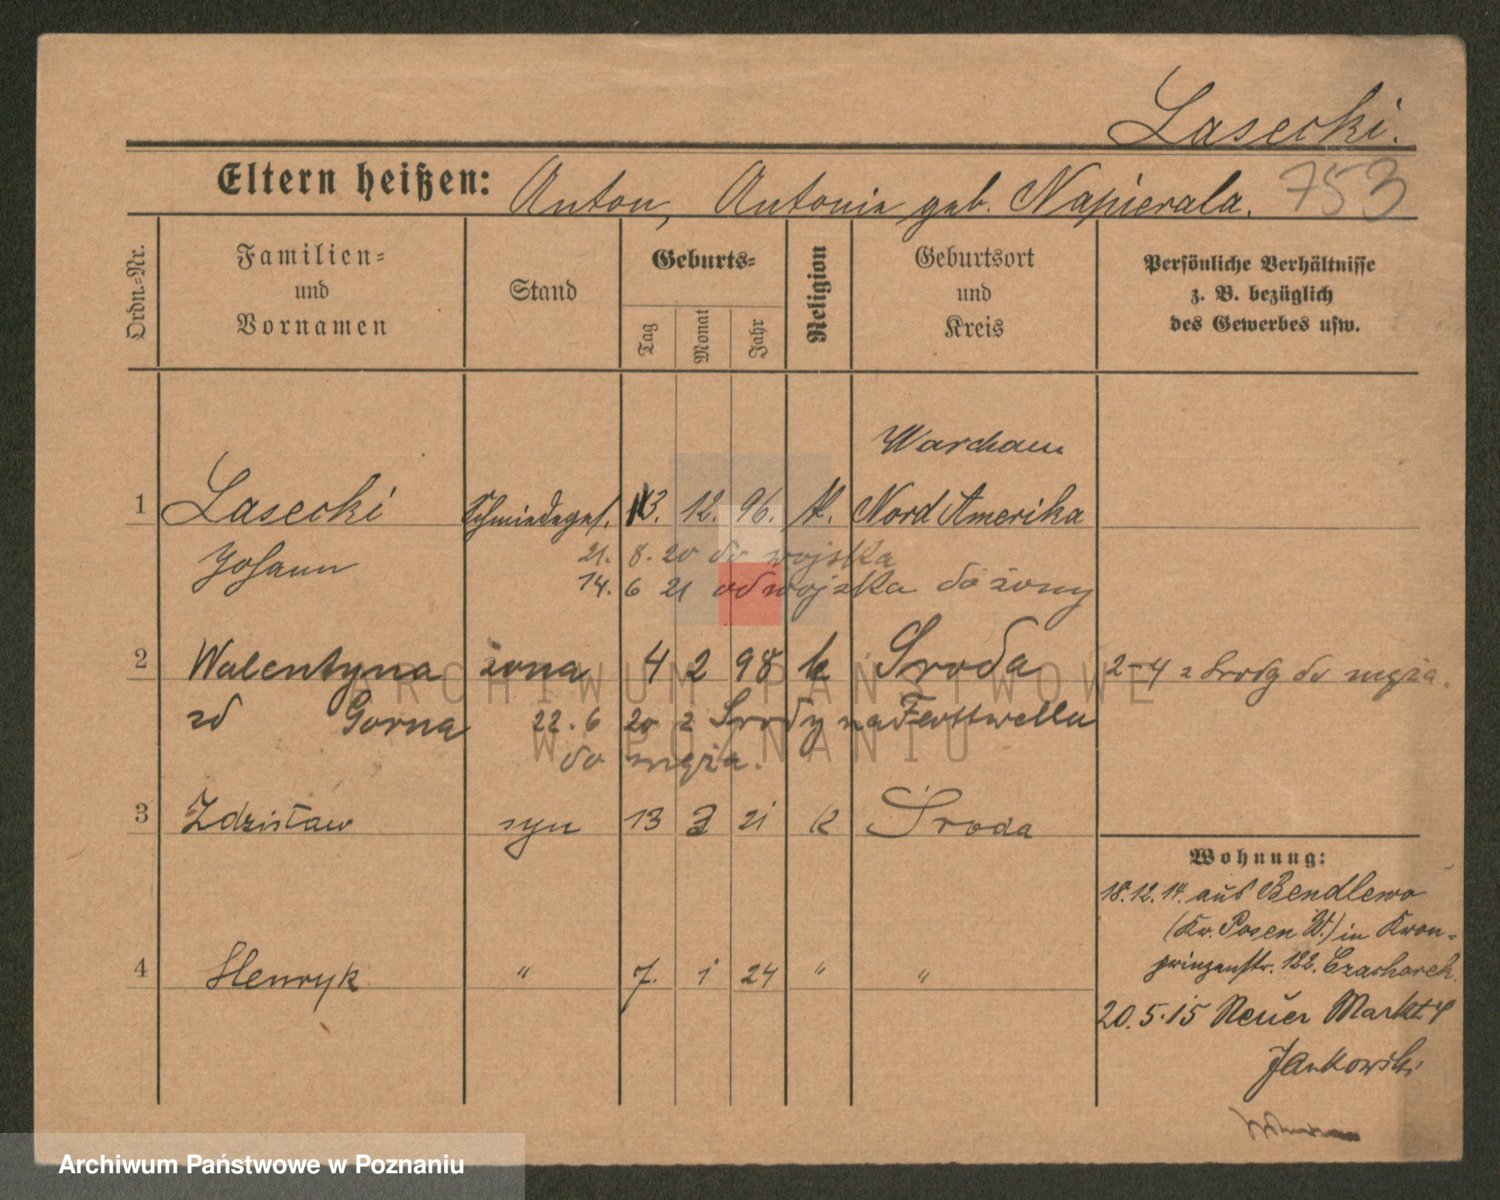 Lasecki.
Eltern heißen: Anton, Antonia geb. Napierala.
753
Ordn.-Nr.
Familien-
und
Vornamen
Stand
Geburts-
Tag
Monat
Jahr
Religion
Geburtsort
und
Kreis
Persönliche Verhältnisse
z. B. bezüglich
des Gewerbes usw.
Warcham
1 Lasecki Schmiedeges. 13. 12. 96. K. Nord Amerika
Johann 21. 8. 20 do wojska
14. 6 21 od wojska do żony
2 Walentyna żona 4 2 98 k Sroda 2-4 z Srody do męża.
zd Gorna 22. 6 20 z Srody na
do męża.
3 Zdzisław syn 13 3 21 k Środa
Wohnung:
18.12.14. aus Bendlewo
(Kr. Posen W.) in Kron-
prinzenstr. 122.
4 Henryk " 7. 1 24 " "
20.5.15 Neuer Markt 4
Jankowski
ARCHIWUM PAŃSTWOWE
W POZNANIU
Archiwum Państwowe w Poznaniu